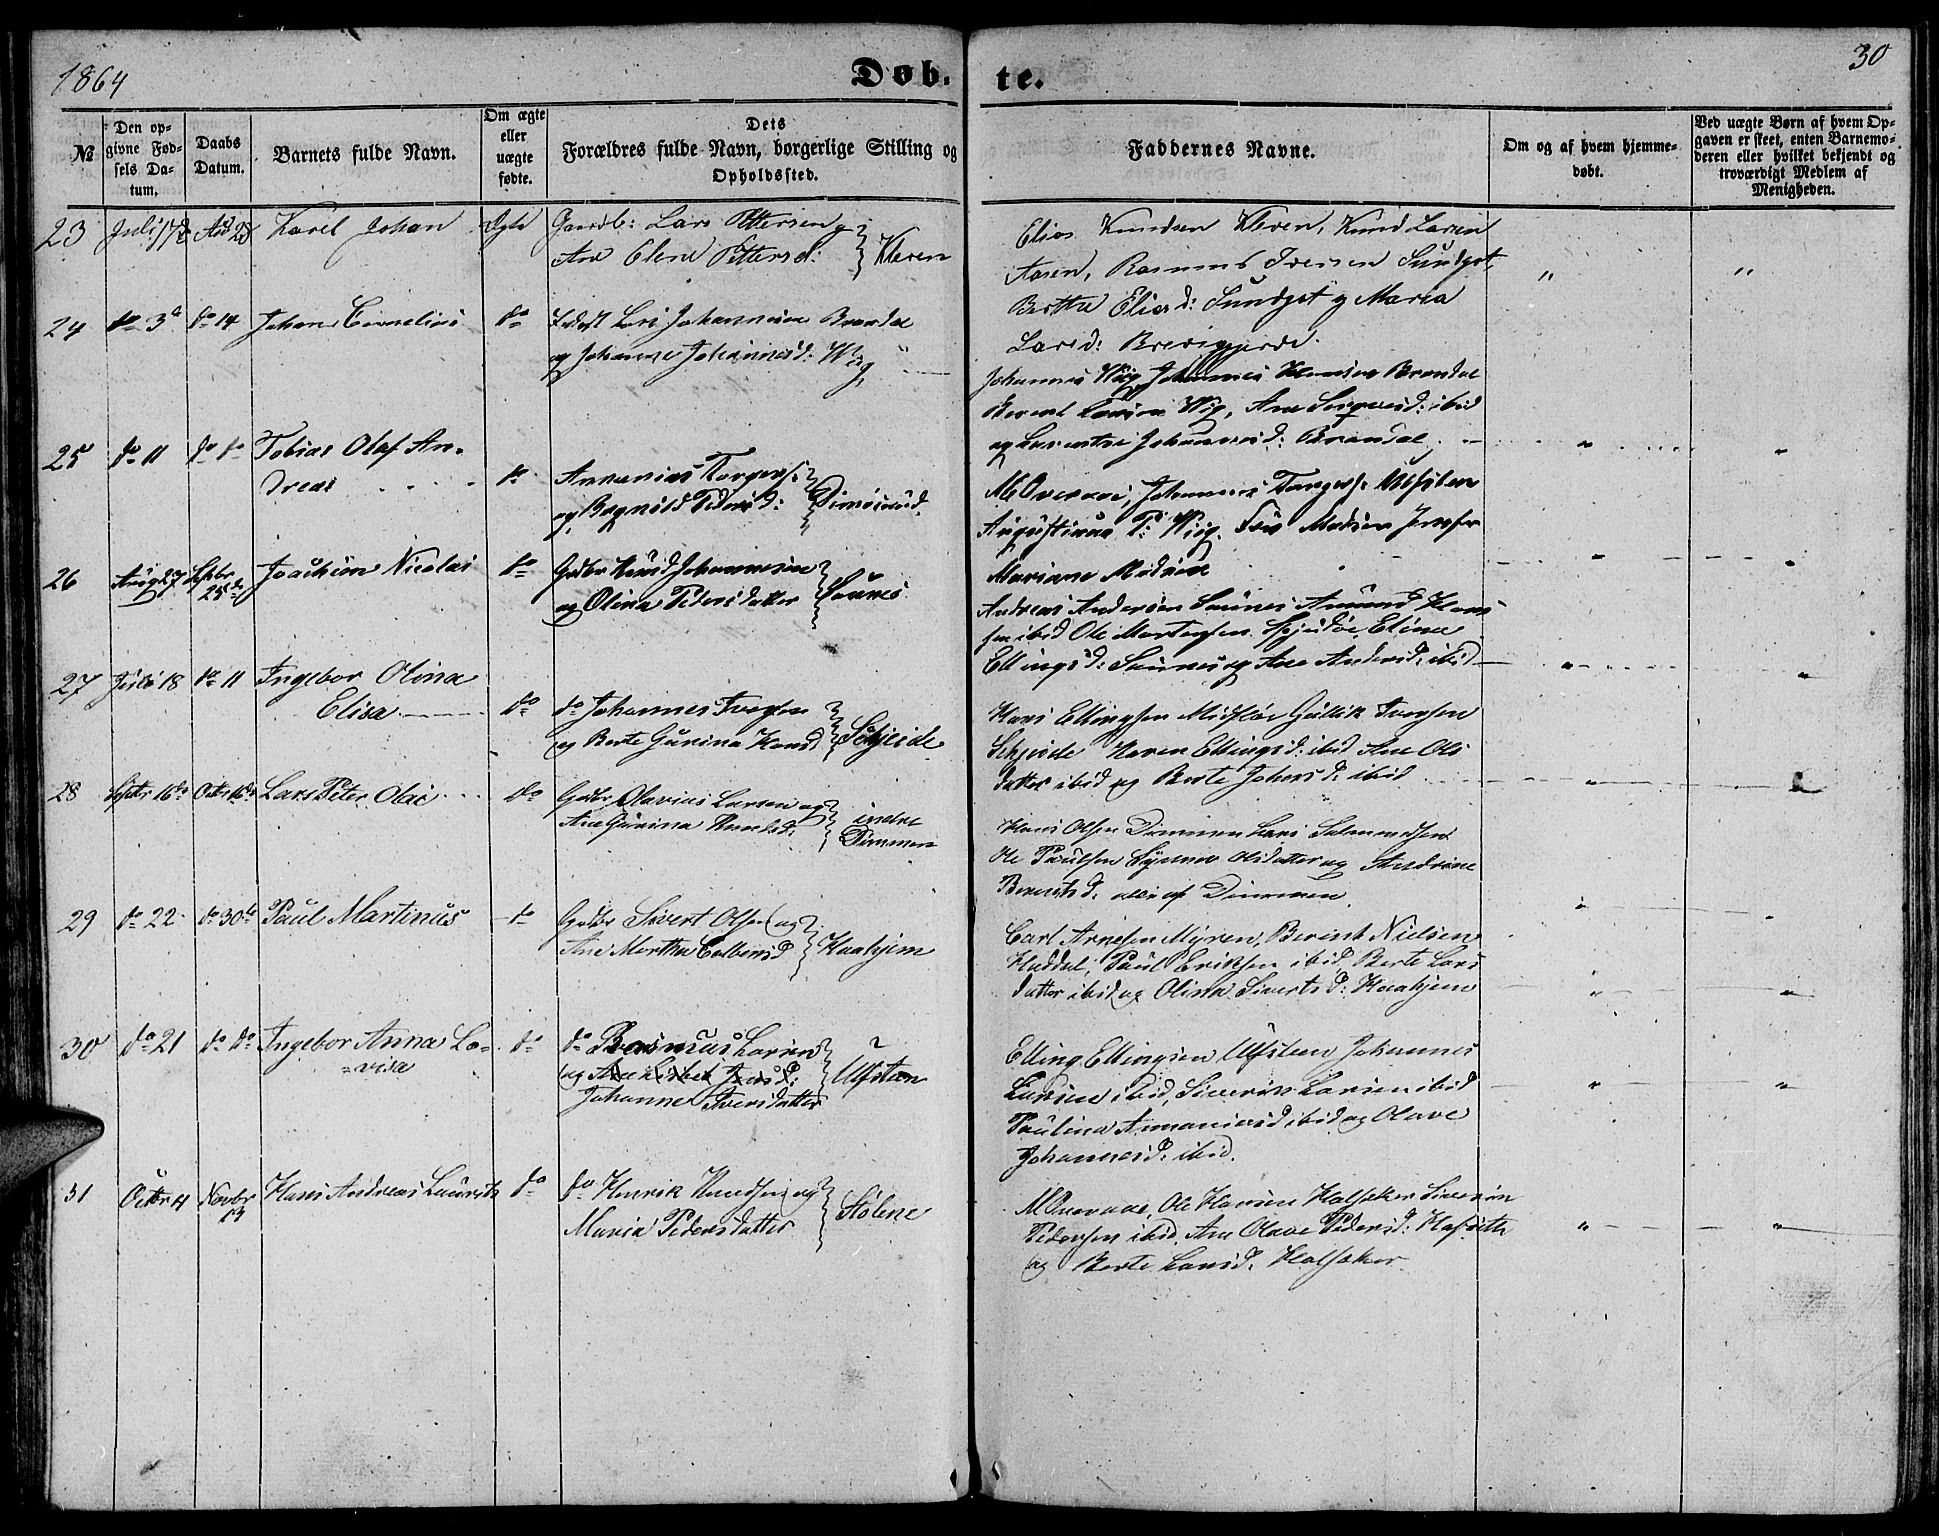 1864
Døb.
te.
30
№
Den op-
givne Fød-
sels Da-
tum.
Daabs
Datum.
Barnets fulde Navn.
Om ægte
eller
uægte
fødte.
Dets
Forældres fulde Navn, borgerlige Stilling og
Opholdssted.
Faddernes Navne.
Om og af hvem hjemme-
døbt.
Ved uægte Børn af hvem Op-
gaven er skeet, enten Barnemo-
deren eller hvilket bekjendt og
troværdigt Medlem af
Menigheden.
23 Juli 17 28 Karel Johan Ægte Gaardb: Lars Pettersen og
Ane Elene Pettersd: Kleven
Elias Knudsen Kleven, Knud Larsen
Aasen, Rasmus Iversen Sundgot,
Berthe Eliasd: Sundgot og Maria
Larsd:
24 do 3 do 14 Johan Cornelius do Lars Johannesen Brandal
og Johanne Johannesd: Wig
Johannes Wiig, Johannes Brandal
Berent Larsen Wig, Ane ibid
og Johannesd: Brandal
25 do 11 do do Tobias Olaf An-
dreas do Annanias Torgers:
og Pedersd:
Johannes Torgers: Ulfsten
Augustinus P: Wiig.
Mariane Madsen
26 Aug 27 Septbr 25de Joachim Nicolai do Gdbr Knud Johannesen
og Olina Pedersdatter Saunes
Andreas Andersen Saunes Amund Han
sen ibid Ole Mortensen Eline
Ellingsd: Saunes og Ane Andersd: ibid
27 Juli 18 do 11 Ingebor Olina
Elisa do do Johannes Iversen
og Berte Gurina Hansd Schjeide
Hans Ellingsen Gullik Iversen
Schjeide Karen Ellingsd: ibid Ane Ols
datter ibid og Berte Johansd: ibid
28 Septbr 16de Octbr 16de Lars Peter Olai do Gdbr Olavius Larsen og
Ane Gurina Knudsd: indre
Dimmen
Hans Olsen Dimmen Lars Salomonsen
Ole Paulsen Synnev Olsdatter og Andrine
Berentsd: alle af Dimmen.
29 do 22 do 30de Paul Martinus do Gdbr Sivert Olsen og
Ane Martha Haahjem
Carl Arnesen Myren, Berint Nielsen
Haddal, Paul Eriksen ibid, Berte Lars
datter ibid og Olina Sivertsd: Haahjem
30 do 21 do do Ingebor Anna Lo-
=visa do do Rasmus Larsen
og
Johanne Iversdatter Ulfsten
Elling Ellingsen Ulfsteen Johannes
Larsen ibid, Siverin Larsen ibid
Paulina Annaniasd ibid og Olave
Johannesd: ibid.
31 Octbr 4 Novbr 13 Hans Andreas Laurits do do Henrik Knudsen og
Maria Pedersdatter Stølene
Ole Hansen Halsaker Siverin
Pedersen ibid. Ane Olave Pedersd:
og Berte Larsd: Halsaker